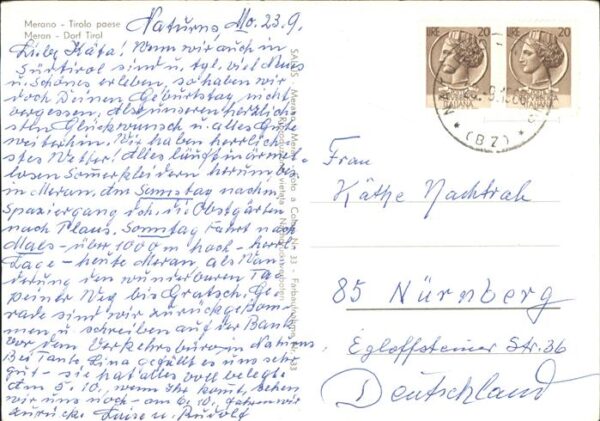 Merano - Tirolo paese
Meran - Dorf Tirol
Naturns, Mo. 23.9.
Liebe Käta! Wenn wir auch in
Südtirol sind u. tgl. viel Neues
u. Schönes erleben, so haben wir
doch Deinen Geburtstag nicht
vergessen. Also unseren herzlich-
sten Glückwunsch u. alles Gute
weiterhin. Wir haben herrlich-
stes Wetter! Alles läuft in ärmel-
losen Sommerkleidern herum bis
in Meran. Am Samstag nachm.
Spaziergang dch. die Obstgärten
nach Plaus. Sonntag Fahrt nach
- über 1000 m hoch - herrl.
Lage - heute Meran, als Wan-
derung den wunderbaren Tap-
peiner Weg bis Gratsch. Ge-
rade sind wir zurückgekom-
men u. schreiben auf der Bank
vor dem Verkehrsbüro in Naturns.
Bei Tante Lina gefällt es uns sehr
gut - sie hat alles voll belegt.
Am 5.10., wenn Ihr kommt, sehen
wir uns noch - am 6.10. fahren wir
zurück. Luise u. Rudolf
LIRE 20
LIRE 20
ITALIANA
ITALIANA
* (BZ) *
Frau
Käthe Nachtrab
85 Nürnberg
Egloffsteiner Str. 36
Deutschland